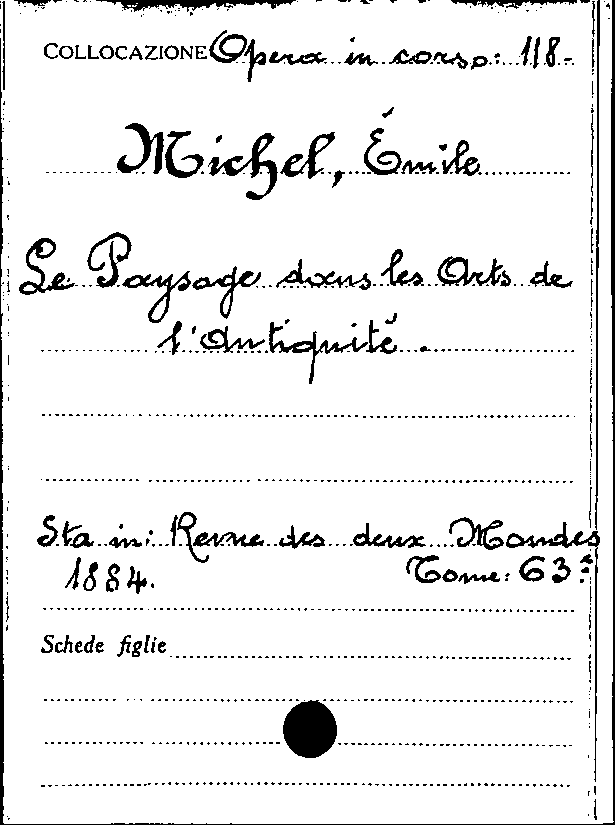 COLLOCAZIONE Opera in corso: 118.
Michel, Émile
Le Paysage dans les Arts de
l'Antiquité.
Sta in: Revue des deux Mondes
1884. Tome: 63º
Schede figlie